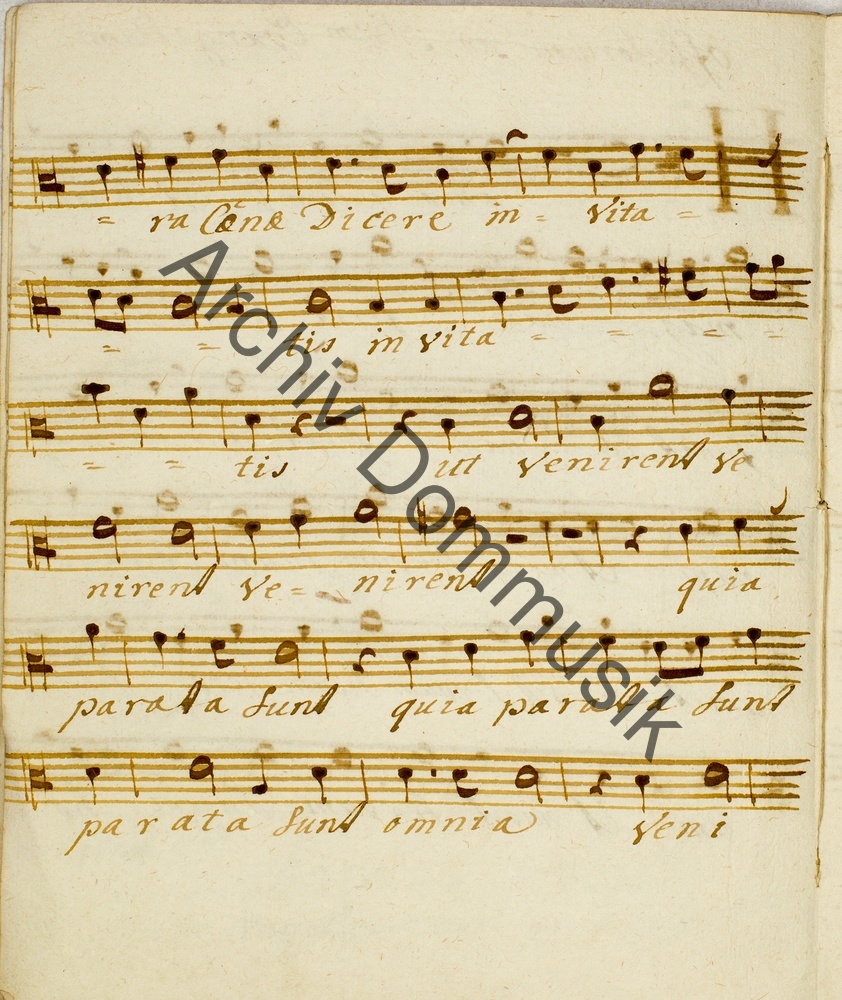 = ra Cœnæ Dicere in = vita =
= = tis in vita = = = =
= = tis ut venirent ve
nirent ve = nirent quia
parata sunt quia parata sunt
parata sunt omnia veni
Archiv Dommusik